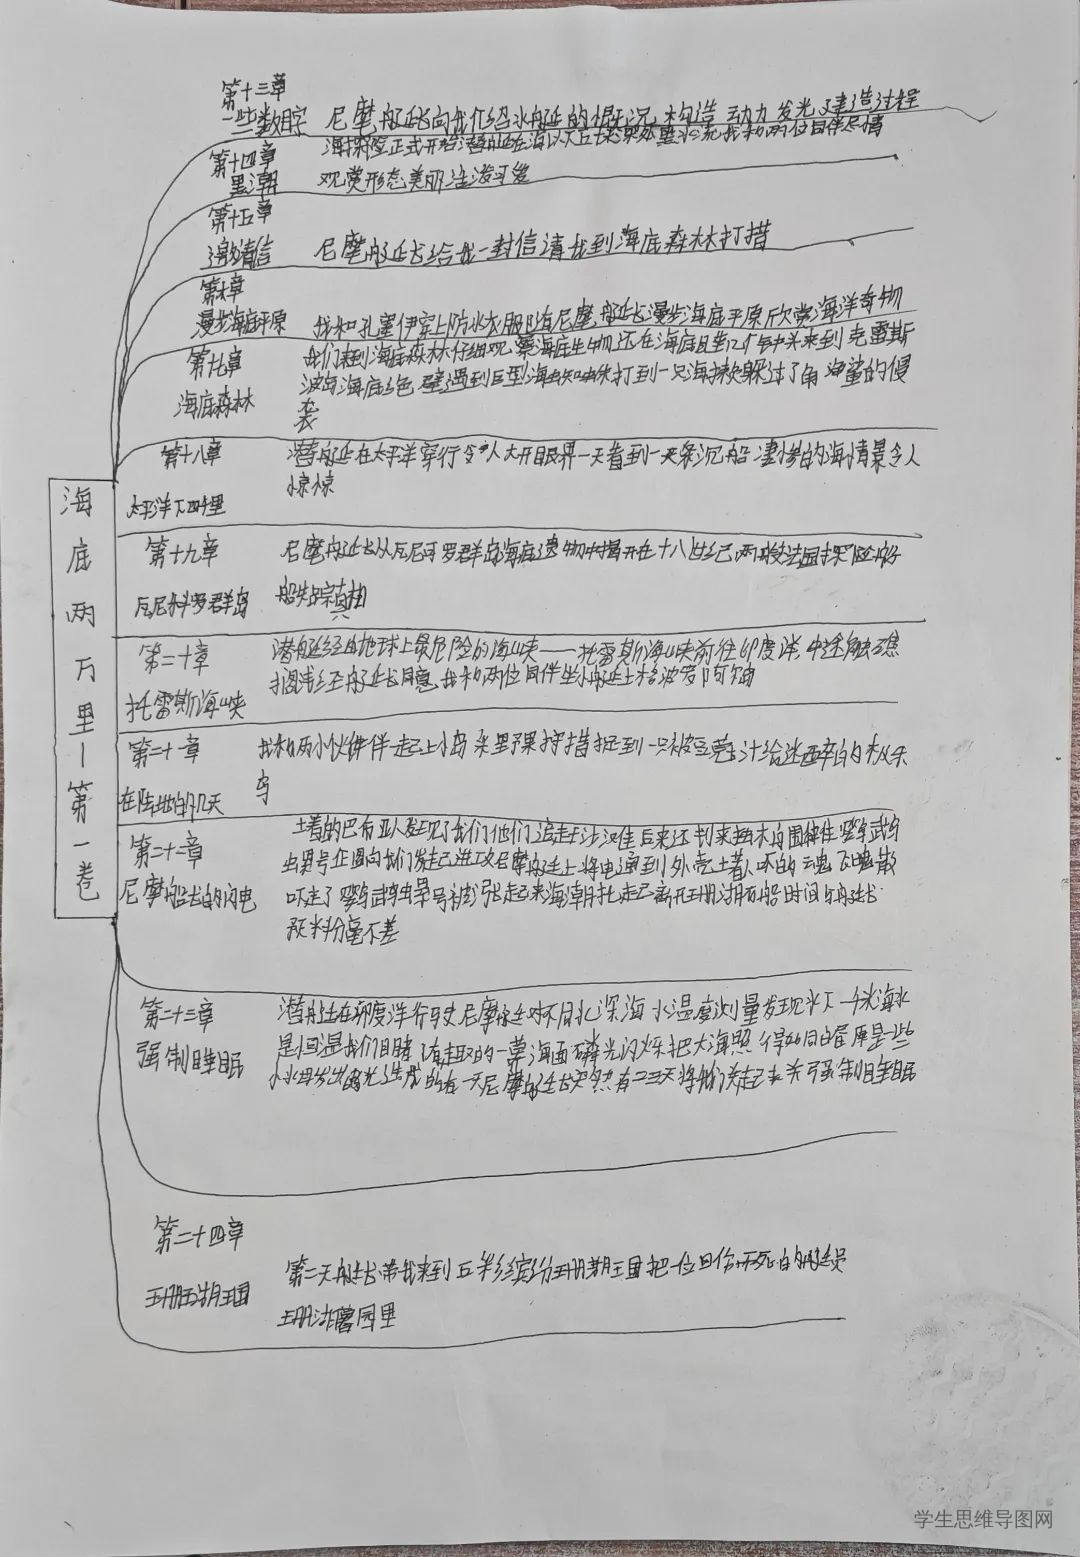 海底两万里—第一卷
第十三章
一些数字
尼摩船长向我介绍潜艇的概况 构造 动力 发光 建造过程
第十四章
黑潮
海探险正式开始潜艇在海以下五十米深处
观赏形态美丽活泼可爱
第十五章
邀请信
尼摩船长给我一封信请我到海底森林打措
漫步海底平原
我和孔塞伊穿上防水衣服随尼摩船长漫步海底平原欣赏海洋奇物
第十七章
海底森林
我们来到海底森林仔细观察海底生物还在海底且 来到克雷斯
波岛海底绝壁遇到巨型海蜘蛛打到一只海獭躲过了角鲨的侵
袭
第十八章
太平洋下四千里
潜艇在太平洋穿行令人大开眼界一天看到一条沉船凄惨的海情景令人
惊惊
第十九章
瓦尼科罗群岛
尼摩船长从瓦尼可罗群岛海底遗物中揭开在十八世纪两艘法国探险船
船失踪真相
第二十章
托雷斯海峡
潜艇经由地球上最危险的海峡——托雷斯海峡前往印度洋,中途触礁
搁浅经船长同意,我和两位同伴坐小艇上格波罗阿尔岛
第二十一章
在陆地的几天
我和两小伙伴一起上小岛采野果狩猎捉到一只被豆蔻汁给迷醉的极乐
鸟
第二十二章
尼摩船长的闪电
土着的巴布亚人发现了我们他们追赶到沙滩后来还划来独木舟围住鹦鹉
企图向我们发起进攻尼摩船长将电通到外壳土着人吓的魂飞魄散
吓走了 号被 起来海潮托起离开珊瑚石船时间与船长
预料分毫不差
第二十三章
强制睡眠
潜艇在印度洋行驶尼摩船长对不同 深海水温度测量发现水下一千米海水
是恒温我们目睹了有趣的一幕海面磷光闪烁把大海照得如同白昼原是一些
小水母发出的光造成的有一天尼摩船长突然 将他们关起来强制睡眠
第二十四章
珊瑚王国
第二天船长带我来到五彩缤纷珊瑚王国把一位因伤 死的船员
珊瑚 园里
学生思维导图网